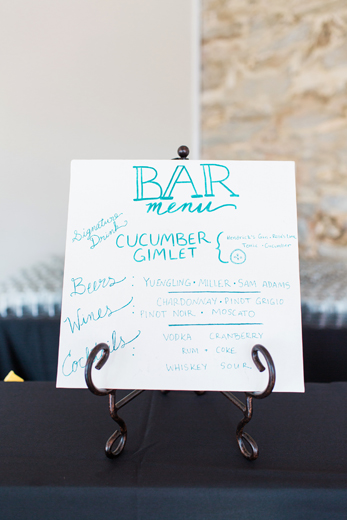 BAR
menu
Signature
Drink
CUCUMBER
GIMLET
Hendrick's Gin,
Tonic + Cucumber
Beers: YUENGLING • MILLER • SAM ADAMS
Wines: CHARDONNAY • PINOT GRIGIO
PINOT NOIR • MOSCATO
Cocktails: VODKA CRANBERRY
RUM + COKE
WHISKEY SOUR